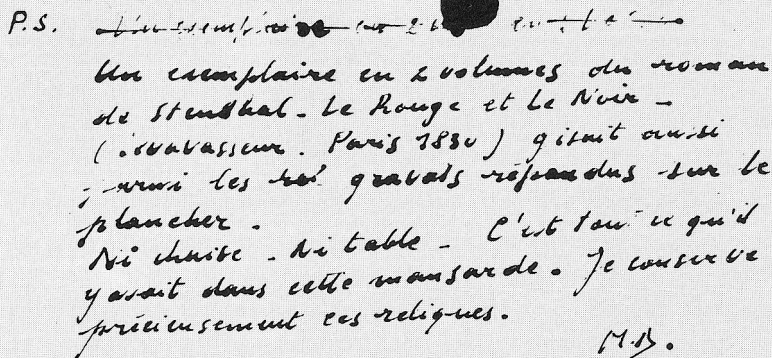 P.S. Un exemplaire en 2
Un exemplaire en 2 volumes du roman
de Stendhal - Le Rouge et Le Noir -
(Levavasseur. Paris 1830) gisait aussi
parmi les gravats répandus sur le
plancher.
Ni chaise - Ni table - C'est tout ce qu'il
y avait dans cette mansarde. Je conserve
précieusement ces reliques.
M.B.